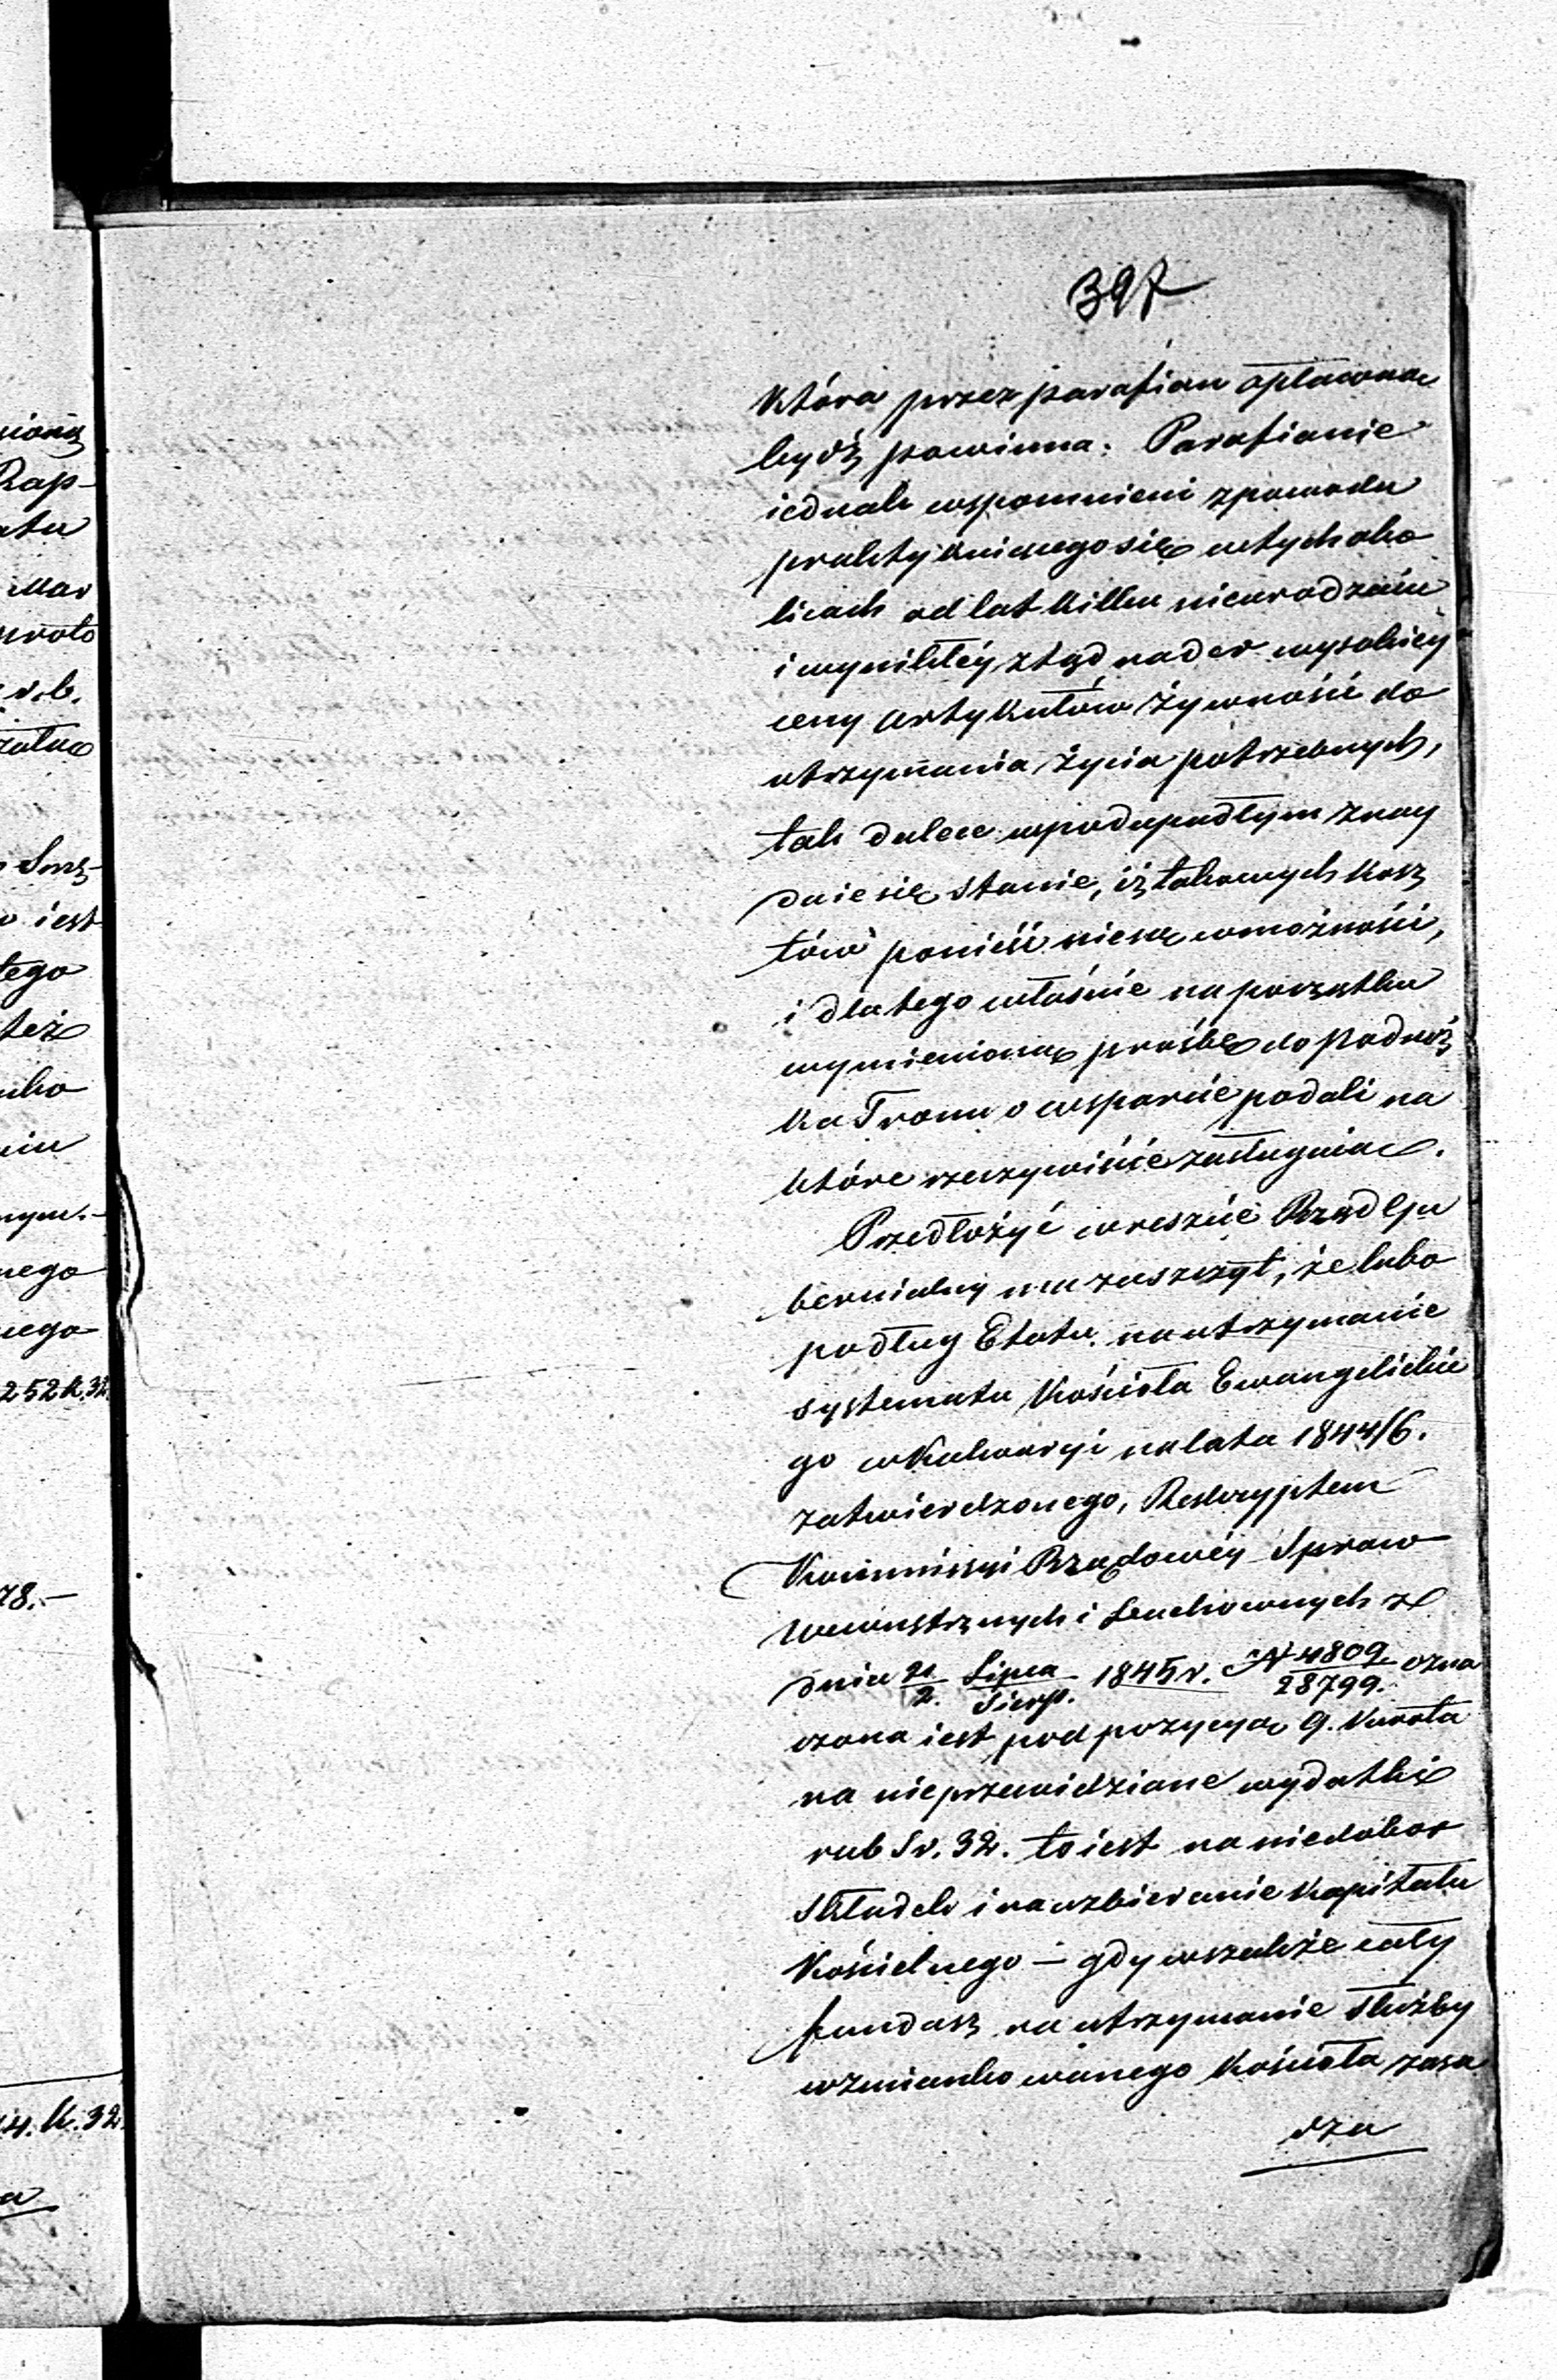 397
która przez parafian opłacona
bydź powinna. Parafianie
iednak wspomnieni zpowodu
praktykuiącego się wtych oko
licach od lat kilku nieurodzaiu
i wynikłéy ztąd nader wysokiey
ceny artykułów żywności do
utrzymania życia potrzebnych,
tak dalece wpodupadłym znay
duie się stanie, iż takowych kosz
tów ponieść niesą wmożności,
i dla tego właśnie na początku
wymienioną prośbę do Podnóż
ka Tronu o wsparcie podali na
które rzeczywiście zasługuią.
Przedłożyć wreszcie Rząd Gu
bernialny ma zaszczyt, że lubo
podług Etatu na utrzymanie
systematu Kościoła Ewangelickie
go w Kalwaryi na lata 1844/6.
zatwierdzonego, Reskryptem
Kommissyi Rządowéy Spraw
Wewnętrznych i Duchownych z
dnia 21/2. Lipca/Sierp. 1845 r. N 4809/28799. ozna
czona iest pod pozycyą 9. kwota
na nieprzewidziane wydatki
rub Sr. 32. to iest na niedobor
składek i na uzbieranie kapitału
Kościelnego – gdy wszakże cały
fundusz na utrzymanie służby
wzmiankowanego Kościoła zasa
dza
sioną
Rap-
atu
Mar
kwoto
rb.
Smę
iest
tego
też
niu
nym.-
nego
nego
252 k. 32
78.-
4. k. 32
a